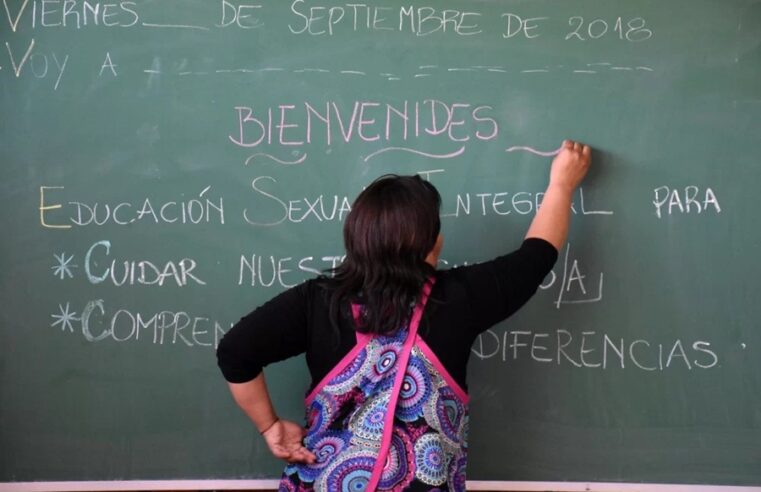 VIERNES___ DE SEPTIEMBRE DE 2018
VOY A _ _ _ _ _ _ _ _ _ _ _ _
BIENVENIDES
EDUCACIÓN SEXUAL INTEGRAL PARA
*CUIDAR /A
*DIFERENCIAS